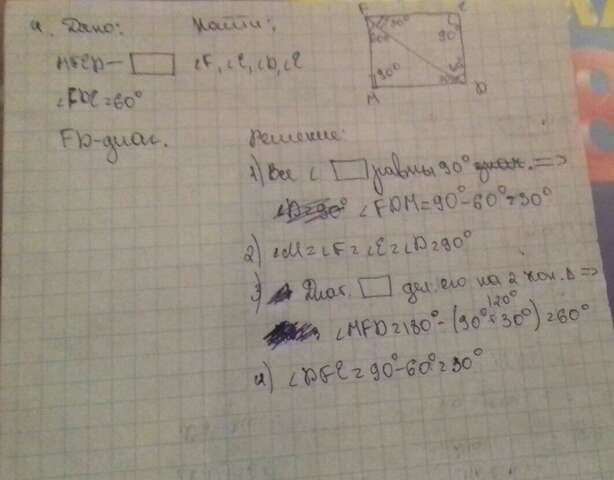 4. Дано: Найти:
MFED — ▭ ∠F, ∠E, ∠D, ∠E
∠FDE = 60°
FD-диаг.
F E
30°
60° 90°
90°
M D
Решение:
1) Все ∠ ▭ равны 90° =>
∠FDM = 90° - 60° = 30°
2) ∠M = ∠F = ∠E = ∠D = 90°
3) Диаг. ▭ дел. его на 2 =>
120°
∠MFD = 180° - (90° + 30°) = 60°
4) ∠DFE = 90° - 60° = 30°